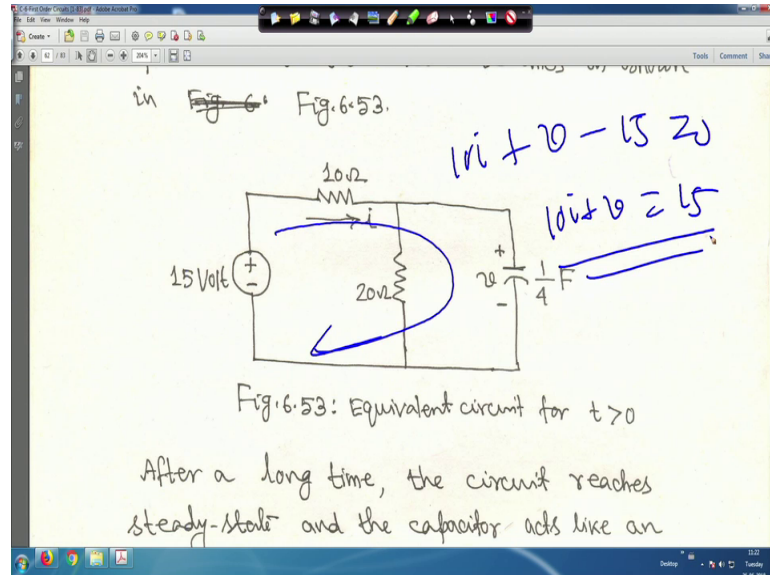 C-6-First Order Circuits (1-83).pdf - Adobe Acrobat Pro
File Edit View Window Help
Create
62 / 83 204%
Tools Comment
in Fig. 6.53.
10i + v - 15 = 0
10i + v = 15
10Ω
i
15 Volt
+
-
20Ω
+
v
-
1/4 F
Fig. 6.53: Equivalent circuit for t>0
After a long time, the circuit reaches
steady-state and the capacitor acts like an
Desktop
11:22
Tuesday